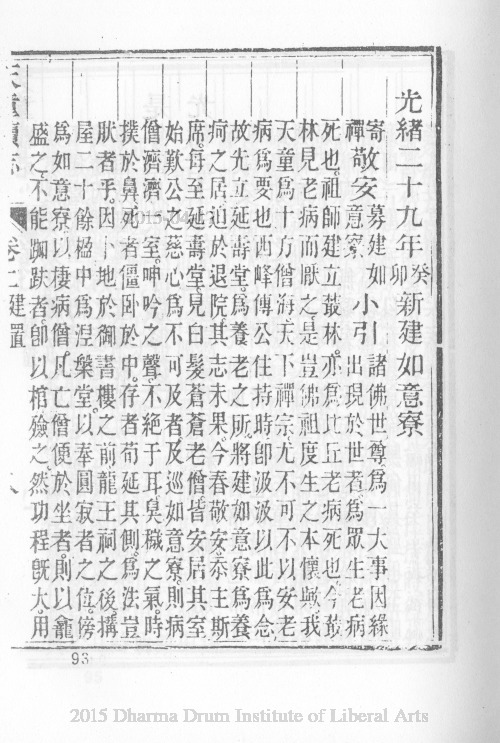 光緒二十九年癸卯新建如意寮
寄禪敬安募建如意寮小引諸佛世尊爲一大事因緣出現於世者爲眾生老病
死也祖師建立叢林亦爲比丘老病死也今叢
林見老病而厭之是豈佛祖度生之本懷歟我
天童爲十方僧海天下禪宗尤不可不以安老
病爲要也西峰傳公住持時卽汲汲以此爲念
故先立延壽堂爲養老之所將建如意寮爲養
疴之居迫於退院其志未果今春敬安忝主斯
席每至延壽堂見白髮蒼蒼老僧皆安居其室
始歎公之慈心爲不可及者及巡如意寮則病
僧濟濟一室呻吟之聲不絕于耳臭穢之氣時
撲於鼻死者僵臥於中存者苟延其側爲法豈
肰者乎因卜地於御書樓之前龍王祠之後搆
屋二十餘楹中爲涅槃堂以奉圓寂者之位傍
爲如意寮以棲病僧凡亡僧便於坐者則以龕
盛之不能跏趺者卽以棺殮之然功程旣大用
天童續志 卷上建置 八
93
2015 Dharma Drum Institute of Liberal Arts